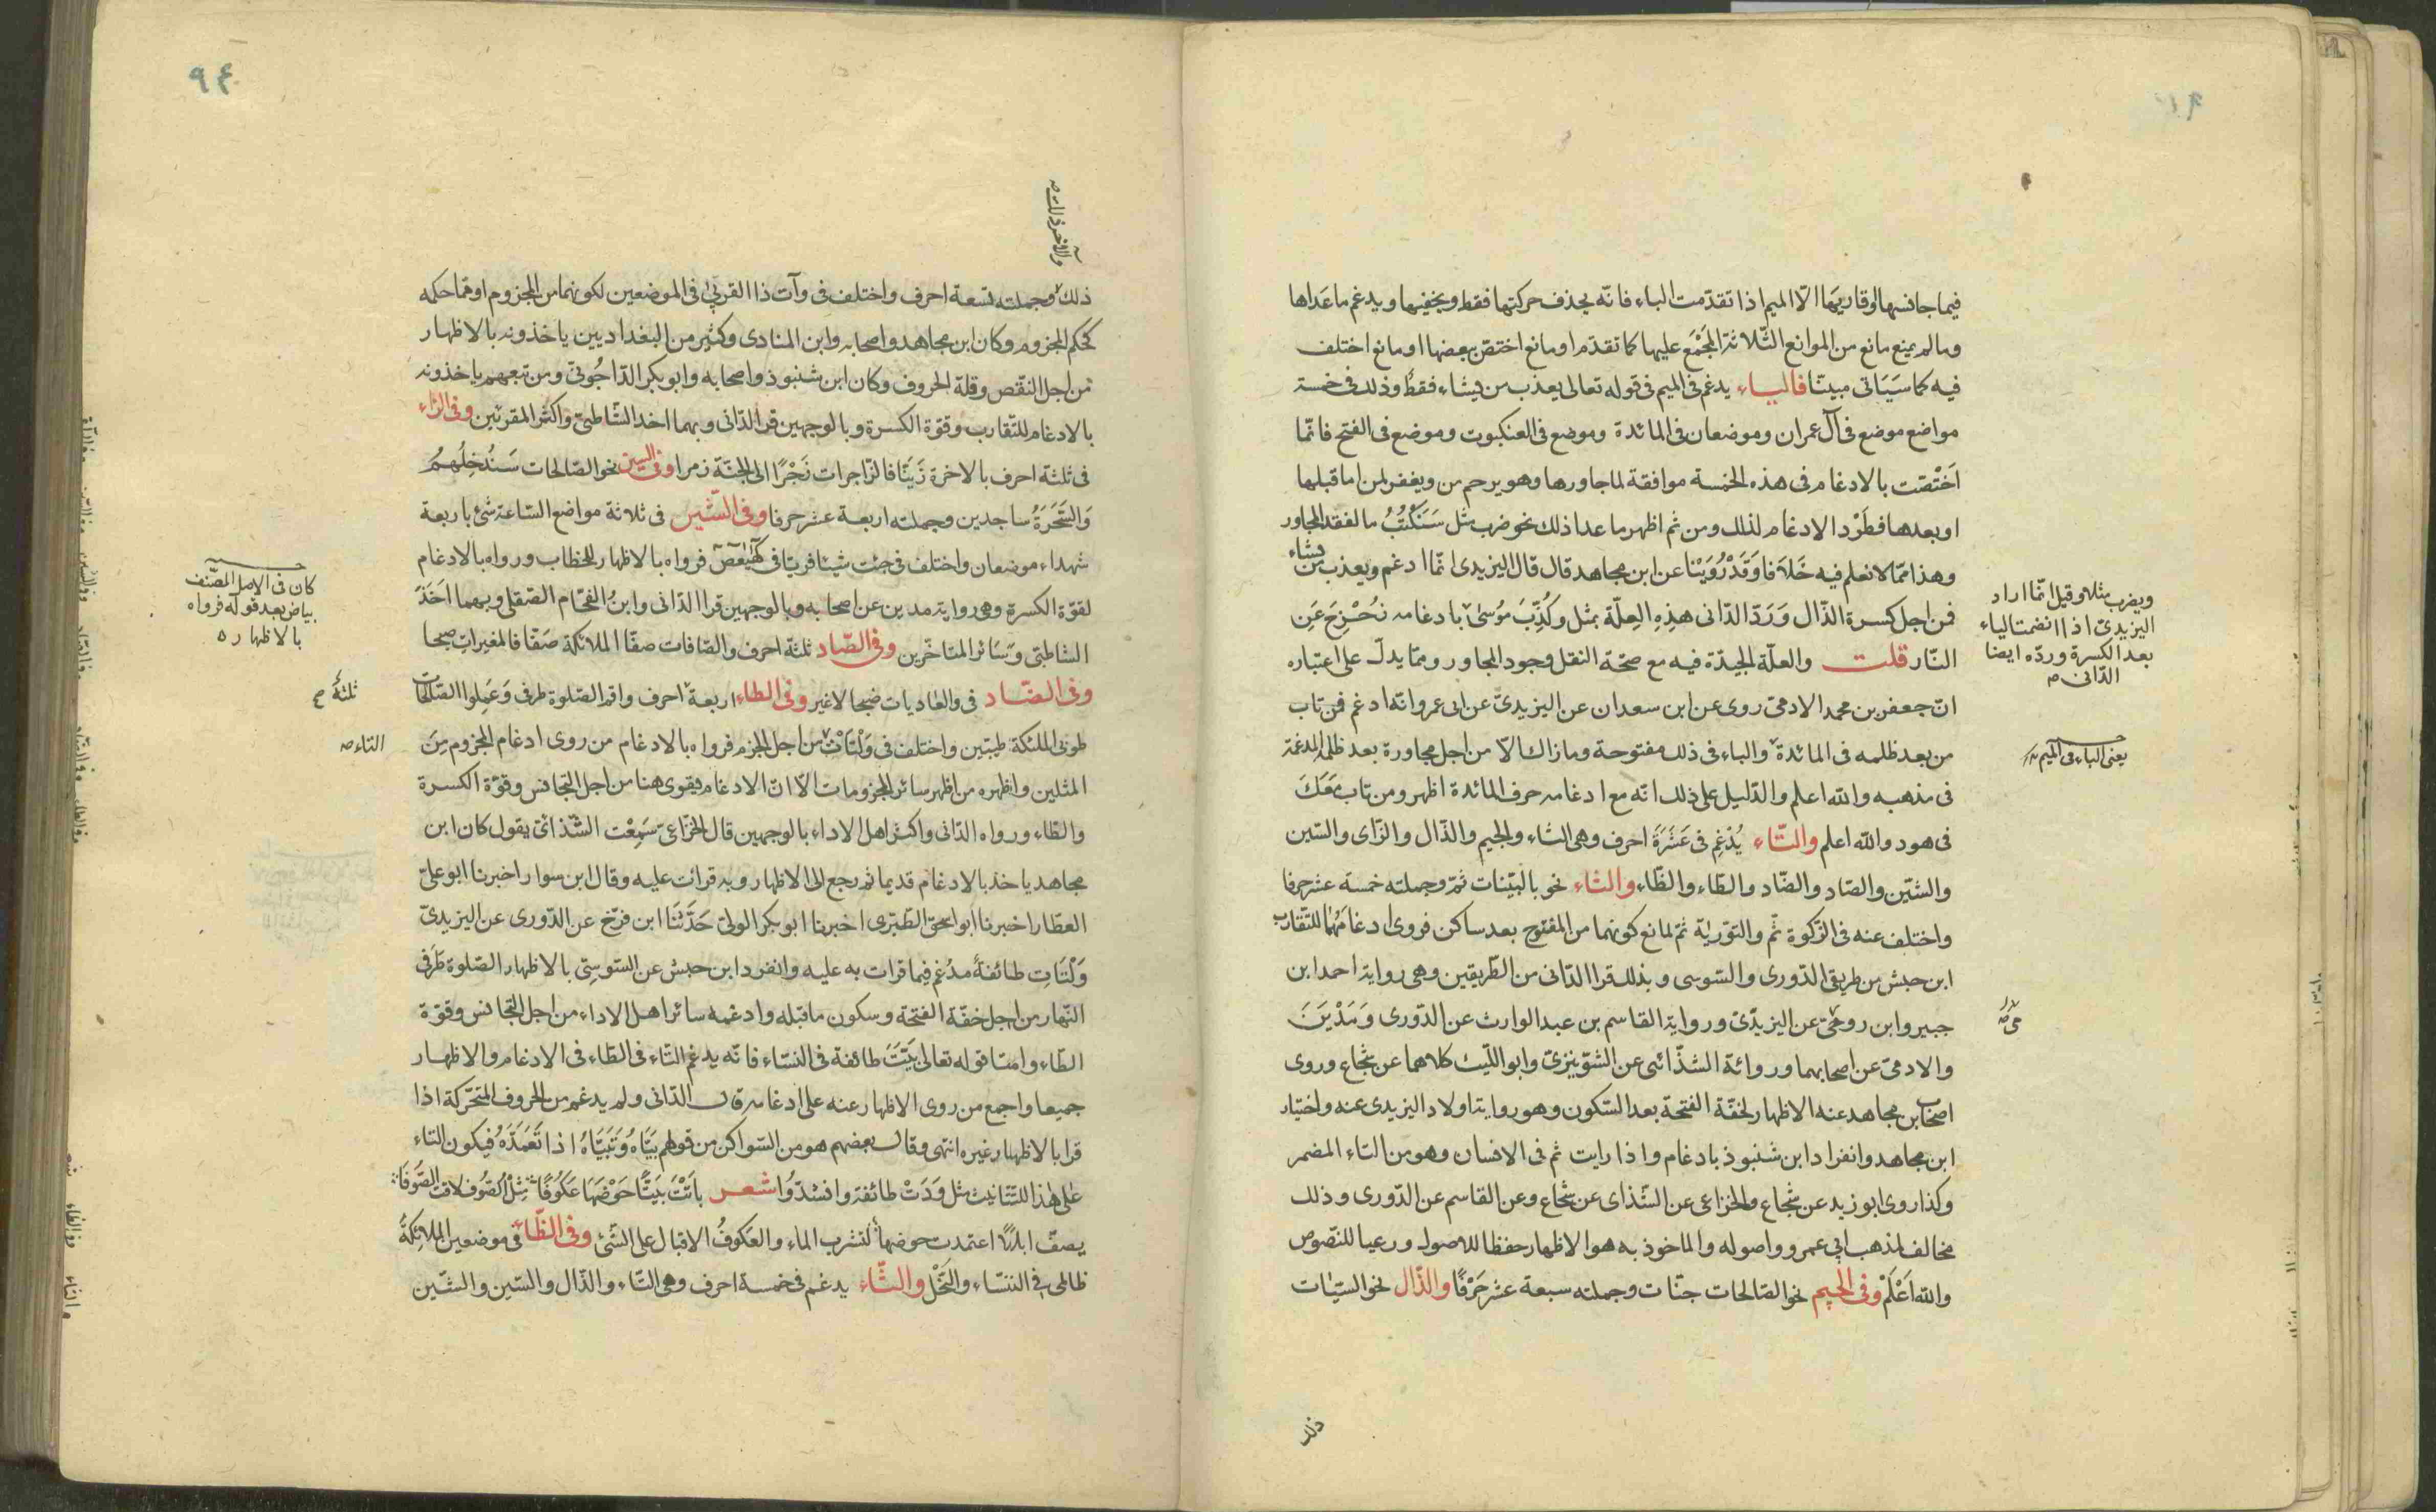 فيما جانسها او قاربها الّا الميم اذا تقدّمت الباء فانّه يحذف حركتها فقط ويخفيها ويدغم ما عَداها
وما لم يمنع مانع من الموانع الثّلاثة المجْمَع عليها كما تقدّم او مانع اختصّ ببعضها او مانع اختلف
فيه كما سَيَاتى مبيّنا فالباء يدغم فى الميم فى قوله تعالى يعذب من يشاء فقط وذلك فى خمسة
مواضع موضع فى آل عمران وموضعان فى المائدة وموضع فى العنكبوت وموضع فى الفتح فانّما
اَخْتصّت بالادغام فى هذه الخمسة موافقة لما جاورها وهو يرحم من ويغفر لمن اما قبلها
او بعدها فطَرْد الادغام لذلك ومن ثم اظهر ما عدا ذلك نحو ضرب مثل سَنَكْتُبُ ما لفقد المجاور
وهذا ممّا لا نعلم فيه خَلاَفا وَقَدْ رُوَيْنا عن ابن مجاهد قال قال اليزيدى انّما ادغم ويعذب من يشاء
فمن اجل كسرة الذّال وَرَدّ الدّانى هذِهِ العِلّة بمثل وكُذِّبَ مُوسٰى بادغامه نحُزْحِزحَ عَنِ
النّار قلت والعلّة الجيدّة فيه مع صحّة النقل وجود المجاور وممّا يدلّ على اعتباره
انّ جعفر بن محمد الادمىّ روى عن ابن سعدان عن اليزيدىّ عن ابى عمرو انّه ادغم فمن تاب
من بعد ظلمه فى المائدة والباء فى ذلك مفتوحة وما زاك الّا من اجل مجاورة بعد ظلمه المدغمة
فى مذهبه والله اعلم والدّليل على ذلك انّه مع ادغامه حرف المائدة اظهر ومن تاب مَعَكَ
فى هود والله اعلم والتّاء يُدْغِم فى عَشَرَةَ احرف وهى الثاء والجيم والذّال والزّاى والسّين
والشّين والصّاد والضّاد والطّاء والظّاء والثاء نحو بالبيّنات ثمّ وجملته خمسة عشر حرفا
واختلف عنه فى الزّكوة ثمّ والتوريٰة ثمّ لمانع كونهما من المفتوح بعد ساكن فروى ادغامَهُمَا للتّقارب
ابن حبش من طريقى الدّورى والسّوسى وبذلك قرا الدّانى من الطّريقين وهى رواية احمد ابن
جبير وابن رومىّ عن اليزيدّى ورواية القاسم بن عبد الوارث عن الدّورى وَمَدْيَنَ
والادمىّ عن اصحابهما وروائة الشذّائى عن الشوّنيزىّ وابو اللّيث كلاهما عن شجاع وروى
اصحاب ابن مجاهد عنه الاظهار لخفّة الفتحة بعد السّكون وهو رواية اولاد اليزيدى عنه واختيار
ابن مجاهد وانفراد ابن شنبوذ بادغام واذا رايت ثم فى الانسان وهو من التاء المضمر
وكذا روى ابو زيد عن شجاع والخزاعى عن الشّذاى عن شجاع وعن القاسم عن الدّورى وذلك
مخالف لمذهب ابى عمرو واصوله والماخوذ به هو الاظهار حفظا للاصول ورعيا للنّصوص
والله اَعْلَمْ وفى الجيم نحو الصّالحات جنّات وجملته سبعة عشر حَرْفًا والذّال نحو السّيّات
ويضرب مثلا وقيل انّما اراد
اليزيدىّ اذا انضمت الياء
بعد الكسرة وردّه ايضا
الدّانى
يعنى الباء فى الميم
ذلك
٩٤
والآخرة ذلك
ذلك وجملته تسعة احرف واختلف فى وآت ذا القربٰى فى الموضعين لكونهما من المجزوم او ممّا حكمه
كحكم المجزوم وكان ابن مجاهد واصحابه وابن المنادى وكثير من البغداديين ياخذونه بالاظهار
من اجل النّقص وقلة الحروف وكان ابن شنبوذ واصحابه وابو بكر الدّاجُونىّ ومن تبعهم ياخذونه
بالادغام للتّقارب وقوّة الكسرة وبالوجهين قرا الدّانى وبهما اخذ الشّاطبىّ واكثر المقرئين وفى الزّاء
فى ثلثة احرف بالاخرة زَيّنّا فالزّاجرات زَجْرًا الى الجنّة زمرا وفى السين نحو الصّالحات سَنُدْخِلُهُمُ
وَالسَّحَرَةُ ساجدين وجملته اربعة عشر حرفا وفى الشّين فى ثلاثة مواضع السّاعة شئ باربعة
شهداء موضعان واختلف فى جئت شيئا فريّا فى كٓهٰيٰعٓصٓ فرواه بالاظهار للخطاب ورواه بالادغام
لقوّة الكسرة وهى رواية مدين عن اصحابه وبالوجهين قرا الدّانى وابنُ الفحّام الصّقلى وبهما اَخَذَ
الشاطبّى وسَائر المتاخّرين وفى الصّاد ثلثة احرف والصّافات صفّا الملائكة صَفّا فالمغيرات صبحا
وفى الضّاد فى والعاديات ضبحا لا غير وفى الطاء اربعة احرف واقم الصّلوة طرفى وَعَمِلوا الصّالحات
طوبى الملٓئكة طيّبين واختلف فى وَلْتَأتِ من اجل الجزم فرواه بالادغام من روى ادغام المجزوم مِنَ
المثلين واظهره من اظهر سائر المجزومات الّا انّ الادغام يقوى هنا من اجل التجانس وقوّة الكسرة
والطّاء ورواه الدّانى واكثر اهل الاداء بالوجهين قال الخزّاعىّ سَمِعْت الشّذائىّ يقول كان ابن
مجاهد ياخذ بالادغام قديما ثم رجع الى الاظهار وبه قرائت عليه وقال ابن سوار اخبرنا ابو علىّ
العطّار اخبرنا ابو اسحق الطّبرى اخبرنا ابو بكر الولىّ حَدَّثَنَا ابن فرَح عن الدّورى عن اليزيدىّ
وَلْتَاتِ طائفةٌ مدغم فيما قرات به عليه وانفرد ابن حبش عن السّوسِىّ بالاظهار الصّلوة طَرَفى
النّهار من اجل خفّة الفتحة وسكون ما قبله وادغمه سائر اهل الاداء من اجل التجانس وقوّة
الطّاء وامّا قوله تعالى بَيّتَ طائفة فى النّسَاء فانّه يدغم التّاء فى الطّاء فى الادغام والاظهار
جميعا واجمع من روى الاظهار عنه على ادغامه قال الدّانى ولم يدغم من الحروف المتحرّكة اذا
قرا بالاظهار غيره انتهى وقال بعضهم هو من السّواكن من قولهم بَيَّاهُ وَتَبَيَّاهُ اذا تَعَمَّدَهُ فيكون التاء
على هٰذا للتّانيث مثل وَدَتْ طائفة وانشدُوا شعر باتَتْ تبَيّا حَوْضَهَا عَكُوفًا مِثْلُ الصّفُوف لاقت الصّفُوفَا
يصف ابلًا اعتمدت حوضها لتشرب الماء والعُكوفُ الاقبال على الشّئ وفى الظّاء فى موضعين الملائِكَةُ
ظالمى فى النّسَاء والنَّحْل والثّاء يدغم فى خمسة احرف وهى التّاء والذّال والسّين والشّين
كان فى الاصل المصنّف
بياض بعد قوله فرواه
بالاظهار
ثلثة
التاء